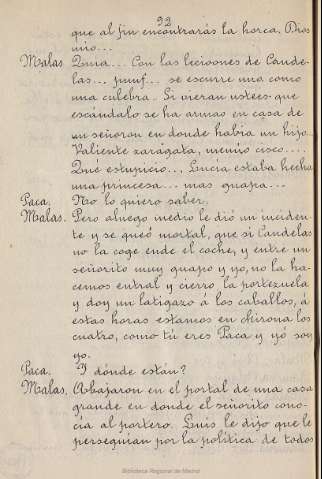 92
que al fin encontrarás la horca. Dios
mio...
Malas. Quia... Con las lecciones de Cande-
las... ¡unf... se escurre uno como
una culebra. Si vieran ustees que
escándalo se ha armao en casa de
un señoron en donde había un hijo...
Valiente zaragata, menúo cisco....
Qué estupicio... Lucia estaba hecha
una princesa... mas guapa...
Paca. No lo quiero saber.
Malas. Pero aluego medio le dió un inciden-
te y se queó mortal, que si Candelas
no la coge ende el coche, y entre un
señorito muy guapo y yo, no la ha-
cemos entral y cierro la portezuela
y doy un latigazo á los caballos, á
estas horas estamos en chirona los
cuatro, como tú eres Paca y yó soy
yo.
Paca. Y dónde están?
Malas. Abajaron en el portal de una casa
grande en donde el señorito cono-
cía al portero. Luis le dijo que le
perseguian por la política de todos
Biblioteca Regional de Madrid